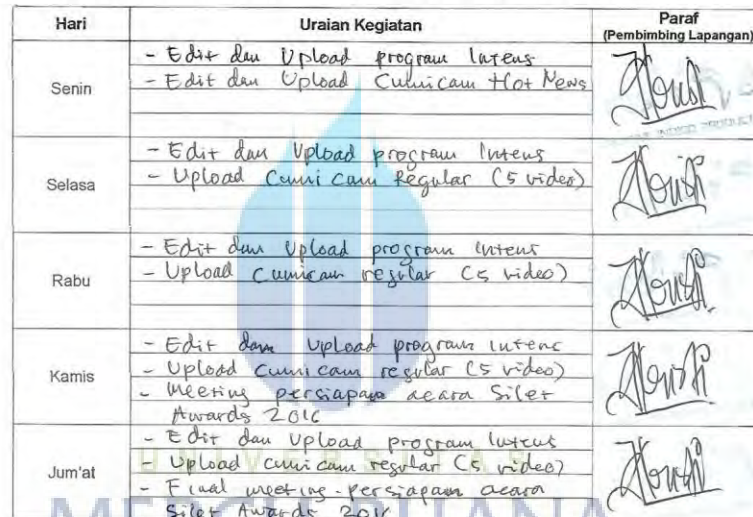 Hari Uraian Kegiatan Paraf
(Pembimbing Lapangan)
Senin
- Edit dan Upload program Intens
- Edit dan Upload Cumicam Hot News
Selasa
- Edit dan Upload program Intens
- Upload Cumi cam Regular (5 video)
Rabu
- Edit dan Upload program intens
- Upload Cumicam regular (5 video)
Kamis
- Edit dan Upload program intens
- Upload Cumicam regular (5 video)
- Meeting persiapan acara Silet
Awards 2016
Jum'at
- Edit dan Upload program Intens
- Upload cumicam regular (5 video)
- Final meeting persiapan acara
Silet Awards 2016
UNIVERSITAS